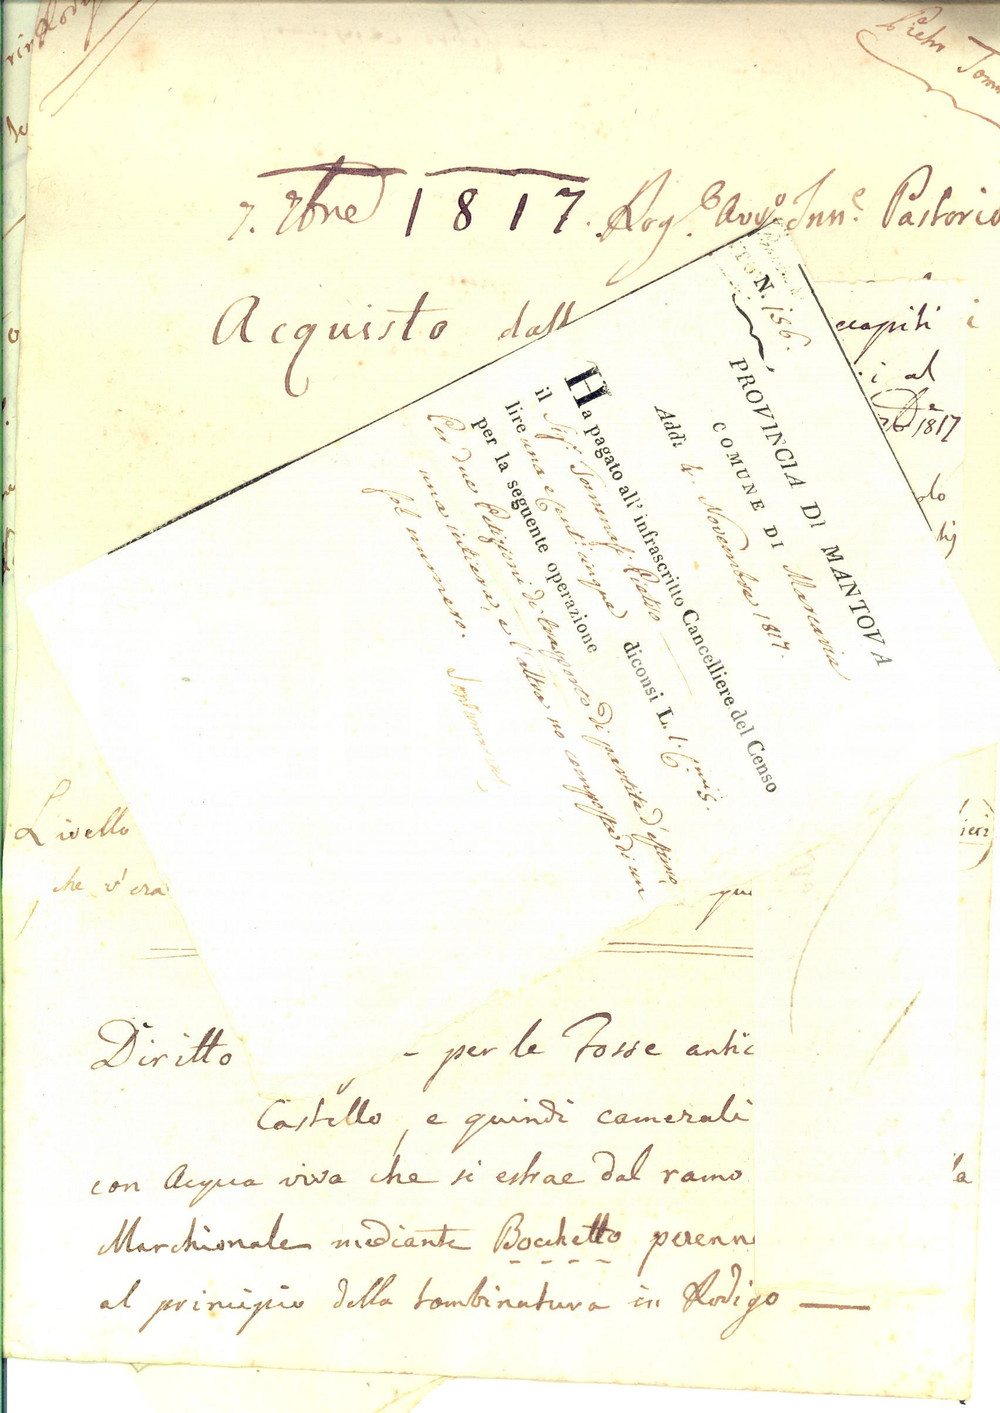 Pietro Tom
7. 7bre 1817. Rog.° Avv.° Inn.e Pastorio
Acquisto dall
ecapiti i
i al
1817
Livello
che v'era
que
Diritto - per le Fosse antic
Castello, e quindi camerali
con Acqua viva che si estrae dal ramo
la
Marchionale mediante Bocchetto perenn
al principio della tombinatura in Rodigo
N. 156.
PROVINCIA DI MANTOVA
COMUNE DI Marcaria
Addì 4. Novembre 1817.
Ha pagato all' infrascritto Cancelliere del Censo
il Sig. Tommasi Pietro
lire una e Cent. cinque diconsi L. 1.
per la seguente operazione
Per due Petizioni di trasporto di partita d'estimo
una intiera, e l'altra no composta di un
sol numero.